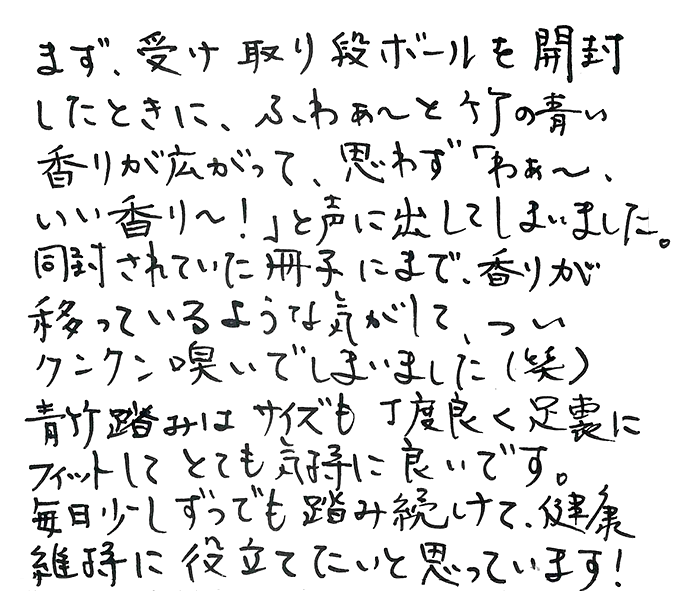 まず、受け取り段ボールを開封
したときに、ふわぁ〜と竹の青い
香りが広がって、思わず「わぁ〜、
いい香り〜!」と声に出してしまいました。
同封されていた冊子にまで、香りが
移っているような気がして、つい
クンクン嗅いでしまいました(笑)
青竹踏みはサイズも丁度良く足裏に
フィットしてとても気持に良いです。
毎日少しずつでも踏み続けて、健康
維持に役立てたいと思っています!